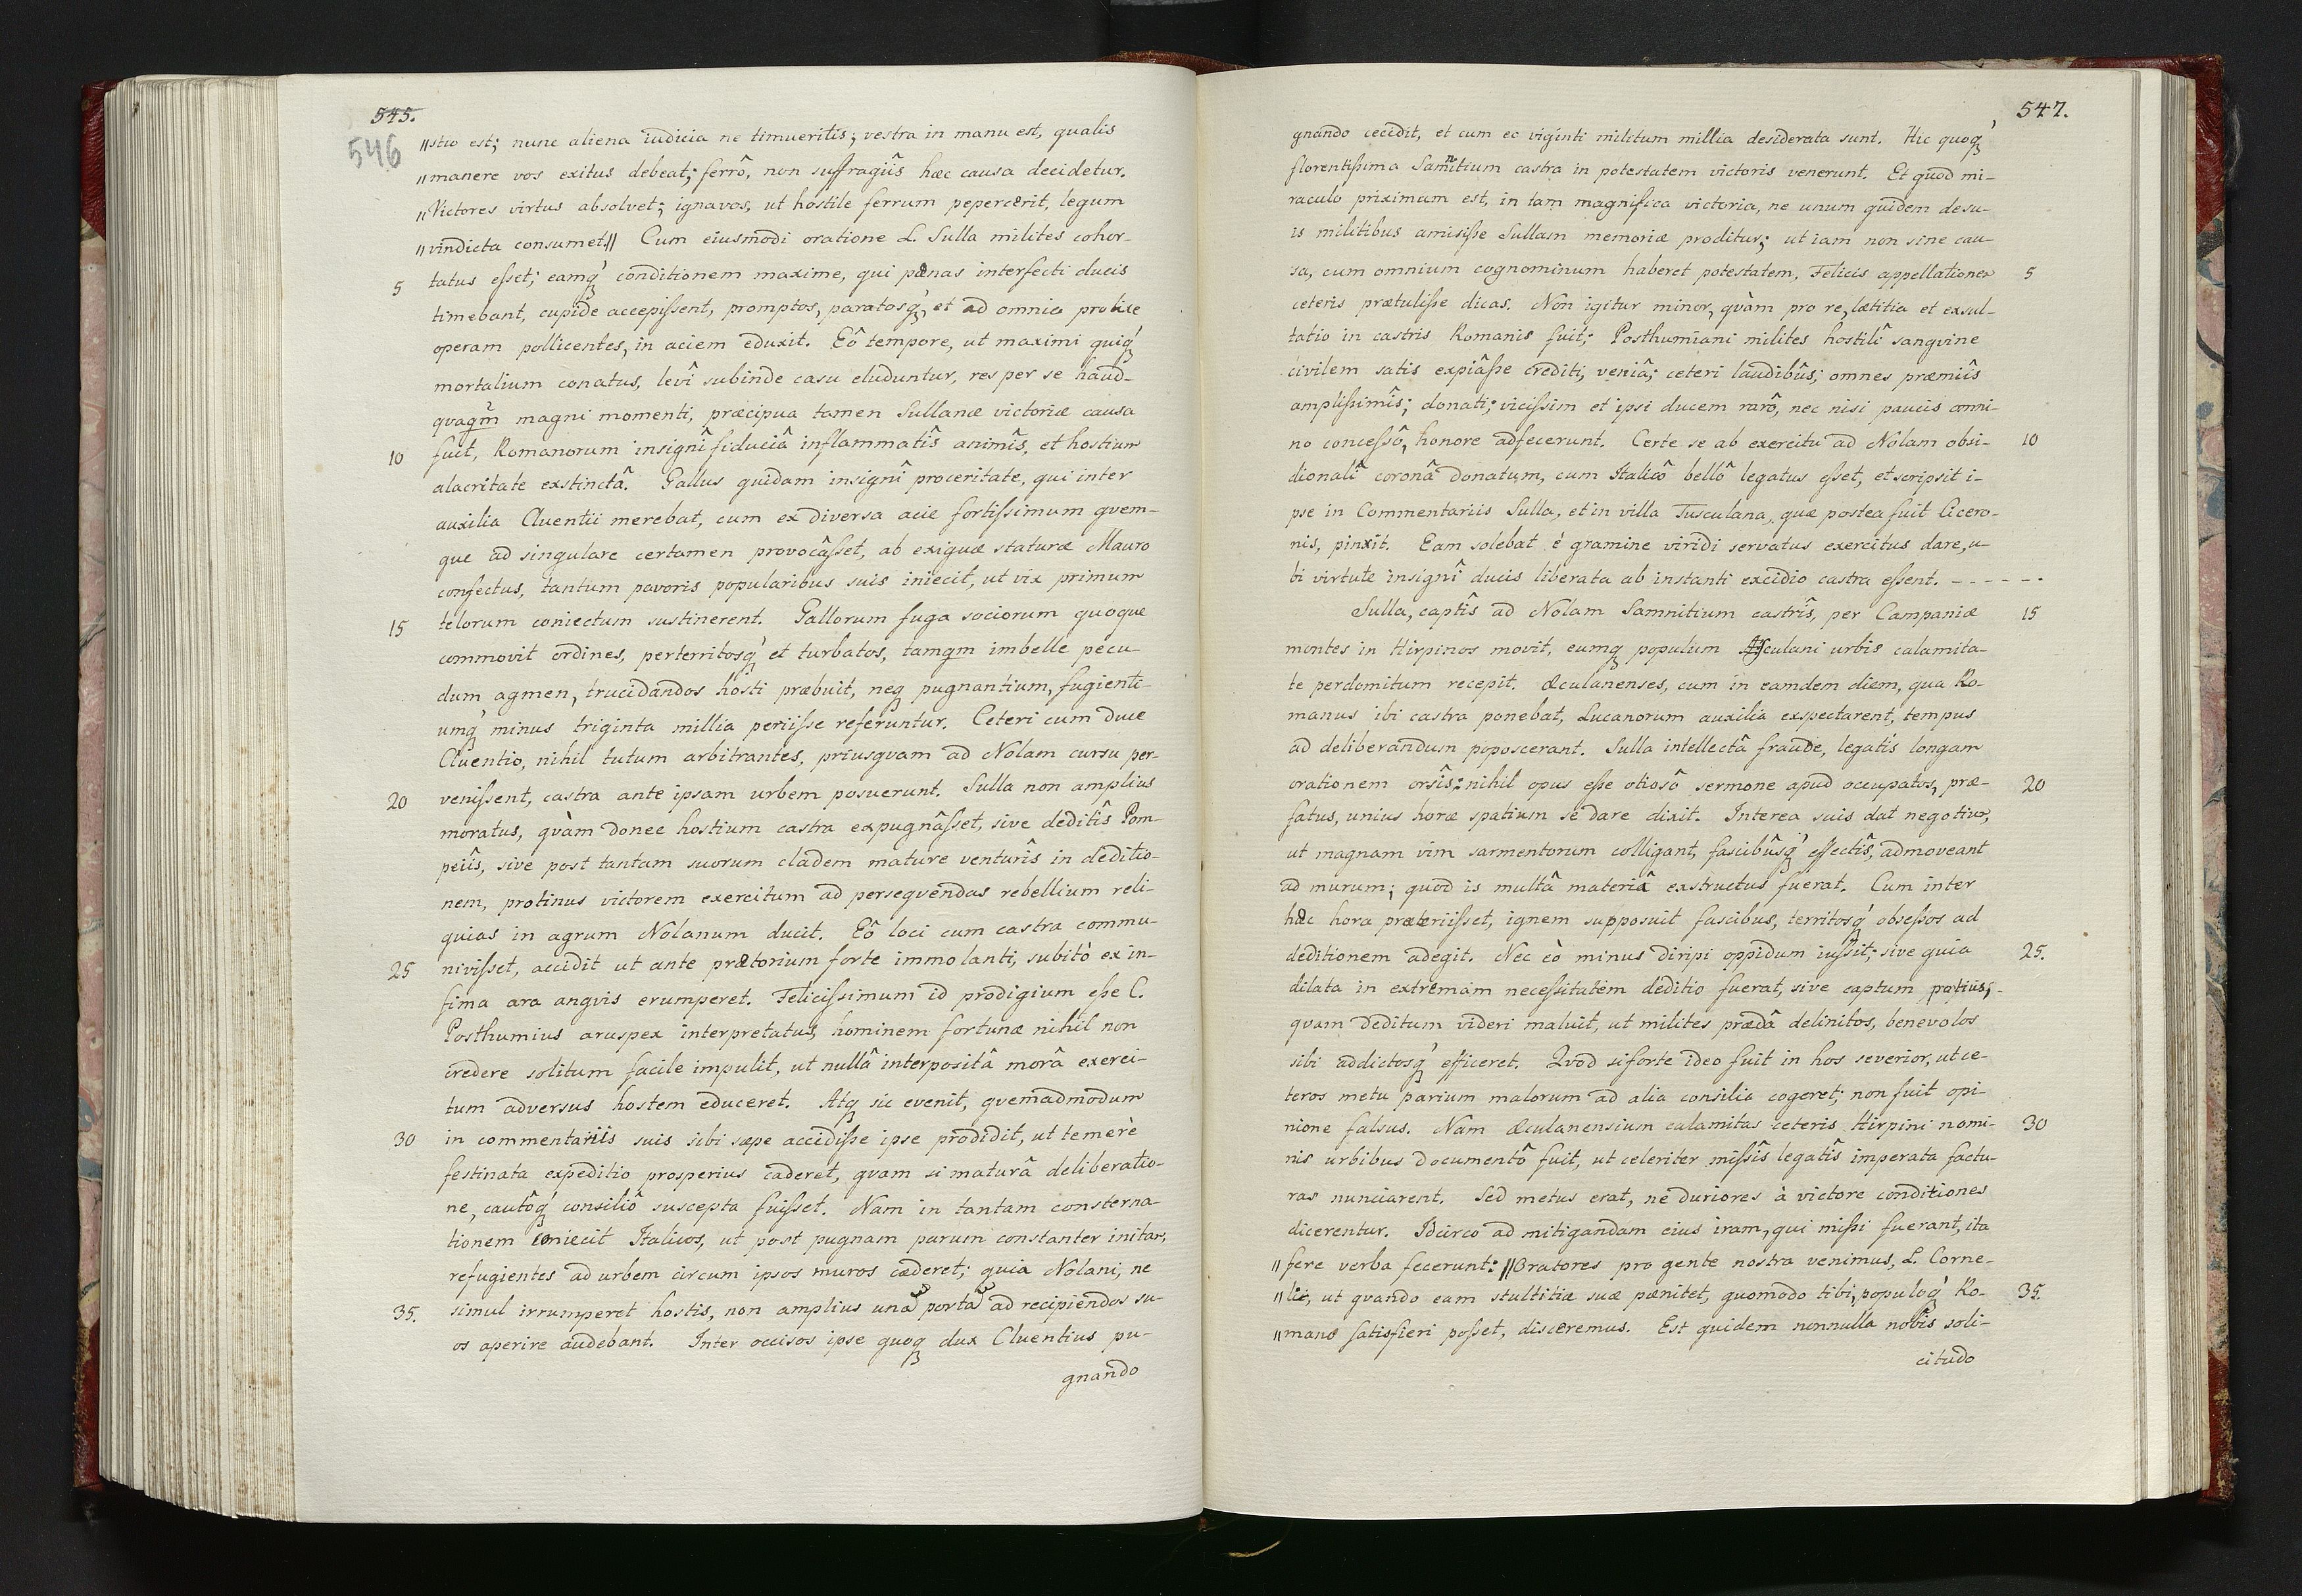 545.
546
〃stio est; nunc aliena iudicia ne timueritis; vestra in manu est, qualis
〃manere vos exitus debeat; ferrô, non suffragiîs hæc causa decidetur.
〃Victores virtus absolvet; ignavos, ut hostile ferrum pepercerit, legum
〃vindicta consumet.〃 Cum eiusmodi oratione L. Sulla milites cohor-
5 tatus eſset; eamq́ conditionem maxime, qui pænas interfecti ducis
timebant, cupide accepiſsent, promptos, paratosq́, et ad omnia prolixe
operam pollicentes, in aciem eduxit. Eô tempore, ut maximi quiq́
mortalium conatus, levî subinde casu eluduntur, res per se haud-
qvaqm̃ magni momenti, præcipua tamen Sullanæ victoriæ causa
10 fuit, Romanorum insignî fiduciâ inflammatîs animîs, et hostium
alacritate exstinctâ. Gallus quidam insignî proceritate, qui inter
auxilia Cluentii merebat, cum ex diversa acie fortiſsimum qvem-
que ad singulare certamen provocâſset, ab exiguæ staturæ Mauro
confectus, tantum pavoris popularibus suis iniecit, ut vix primum
15 telorum coniectum sustinerent. Gallorum fuga sociorum quoque
commovit ordines, perterritosq́ et turbatos, tamqm imbelle pecu-
dum agmen, trucidandos hosti præbuit, neq pugnantium, fugienti-
umq́ minus triginta millia periiſse referuntur. Ceteri cum duce
Cluentio, nihil tutum arbitrantes, priusqvam ad Nolam cursu per-
20 veniſsent, castra ante ipsam urbem posuerunt. Sulla non amplius
moratus, qvàm donec hostium castra expugnâſset, sive deditîs Pom-
peiîs, sive post tantam suorum cladem mature venturîs in deditio-
nem, protinus victorem exercitum ad perseqvendas rebellium reli-
quias in agrum Nolanum ducit. Eô loci cum castra commu-
25 niviſset, accidit ut ante prætorium forte immolanti, subitò ex in-
fima ara angvis erumperet. Feliciſsimum id prodigium eſse C.
Posthumius aruspex interpretatus, hominem fortunæ nihil non
credere solitum facile impulit, ut nullâ interpositâ morâ exerci-
tum adversus hostem educeret. Atq sic evenit, qvemadmodum
30 in commentariis suis sibi sæpe accidiſse ipse prodidit, ut temerè
festinata expeditio prosperius caderet, qvam si maturâ deliberatio-
ne, cautôq́ consiliô suscepta fuiſset. Nam in tantam consterna-
tionem coniecit Italicos, ut post pugnam parum constanter initam,
refugientes ad urbem circum ipsos muros cæderet; quia Nolani, ne
35. simul irrumperet hostis, non amplius una porta ad recipiendos su-
os aperire audebant. Inter occisos ipse quoq dux Cluentius pu-
gnando
547.
gnando cecidit, et cum eo viginti militum millia desiderata sunt. Hic quoq́
florentiſsima Samnitium castra in potestatem victoris venerunt. Et quod mi-
raculo priximum est, in tam magnifica victoria, ne unum quidem de su-
is militibus amisiſse Sullam memoriæ proditur; ut iam non sine cau-
sa, cum omnium cognominum haberet potestatem, Felicis appellationem 5
ceteris prætuliſse dicas. Non igitur minor, qvàm pro re, lætitia et exsul-
tatio in castris Romanis fuit; Posthumiani milites hostilî sangvine
civilem satis expiâſse crediti, veniâ; ceteri laudibûs; omnes præmiîs
ampliſsimîs; donati; viciſsim et ipsi ducem rarô, nec nisi paucis omni-
no conceſsô, honore adfecerunt. Certe se ab exercitu ad Nolam obsi- 10
dionalî coronâ donatum, cum Italicô bellô legatus eſset, et scripsit i-
pse in Commentariis Sulla, et in villa Tusculana, quæ postea fuit Cicero-
nis, pinxit. Eam solebat è gramine viridi servatus exercitus dare, u-
bi virtute insignî ducis liberata ab instanti excidio castra eſsent. - - - - - -
Sulla, captîs ad Nolam Samnitium castrîs, per Campaniæ 15
montes in Hirpinos movit, eumq populum Æculani urbis calamita-
te perdomitum recepit. Æculanenses, cum in eamdem diem, qua Ro-
manus ibi castra ponebat, Lucanorum auxilia exspectarent, tempus
ad deliberandum poposcerant. Sulla intellectâ fraude, legatîs longam
orationem orsîs: nihil opus eſse otiosô sermone apud occupatos, præ- 20
fatus, unius horæ spatium se dare dixit. Interea suis dat negotium,
ut magnam vim sarmentorum colligant, fascibûsq́ effectîs, admoveant
ad murum; quod is multâ materiâ exstructus fuerat. Cum inter
hæc hora præteriiſset, ignem supposuit fascibus, territosq́ obseſsos ad
deditionem adegit. Nec eò minus diripi oppidum iuſsit; sive quia 25.
dilata in extremam neceſsitatem deditio fuerat, sive captum potius,
qvam deditum videri maluit, ut milites prædâ delinitos, benevolos
sibi addictosq́ efficeret. Qvod si forte ideo fuit in hos severior, ut ce-
teros metu parium malorum ad alia consilia cogeret; non fuit opi-
nione falsus. Nam Æculanensium calamitas ceteris Hirpini nomi- 30
nis urbibus documentô fuit, ut celeriter miſsîs legatîs imperata factu-
ras nunciarent. Sed metus erat, ne duriores à victore conditiones
dicerentur. Idcirco ad mitigandam eius iram, qui miſsi fuerant, ita
〃fere verba fecerunt: 〃Oratores pro gente nostra venimus, L. Corne-
〃li, ut qvando eam stultitiæ suæ pænitet, quomodo tibi, populoq́ Ro- 35.
〃mano satisfieri poſset, disceremus. Est quidem nonnulla nobis soli-
citudo